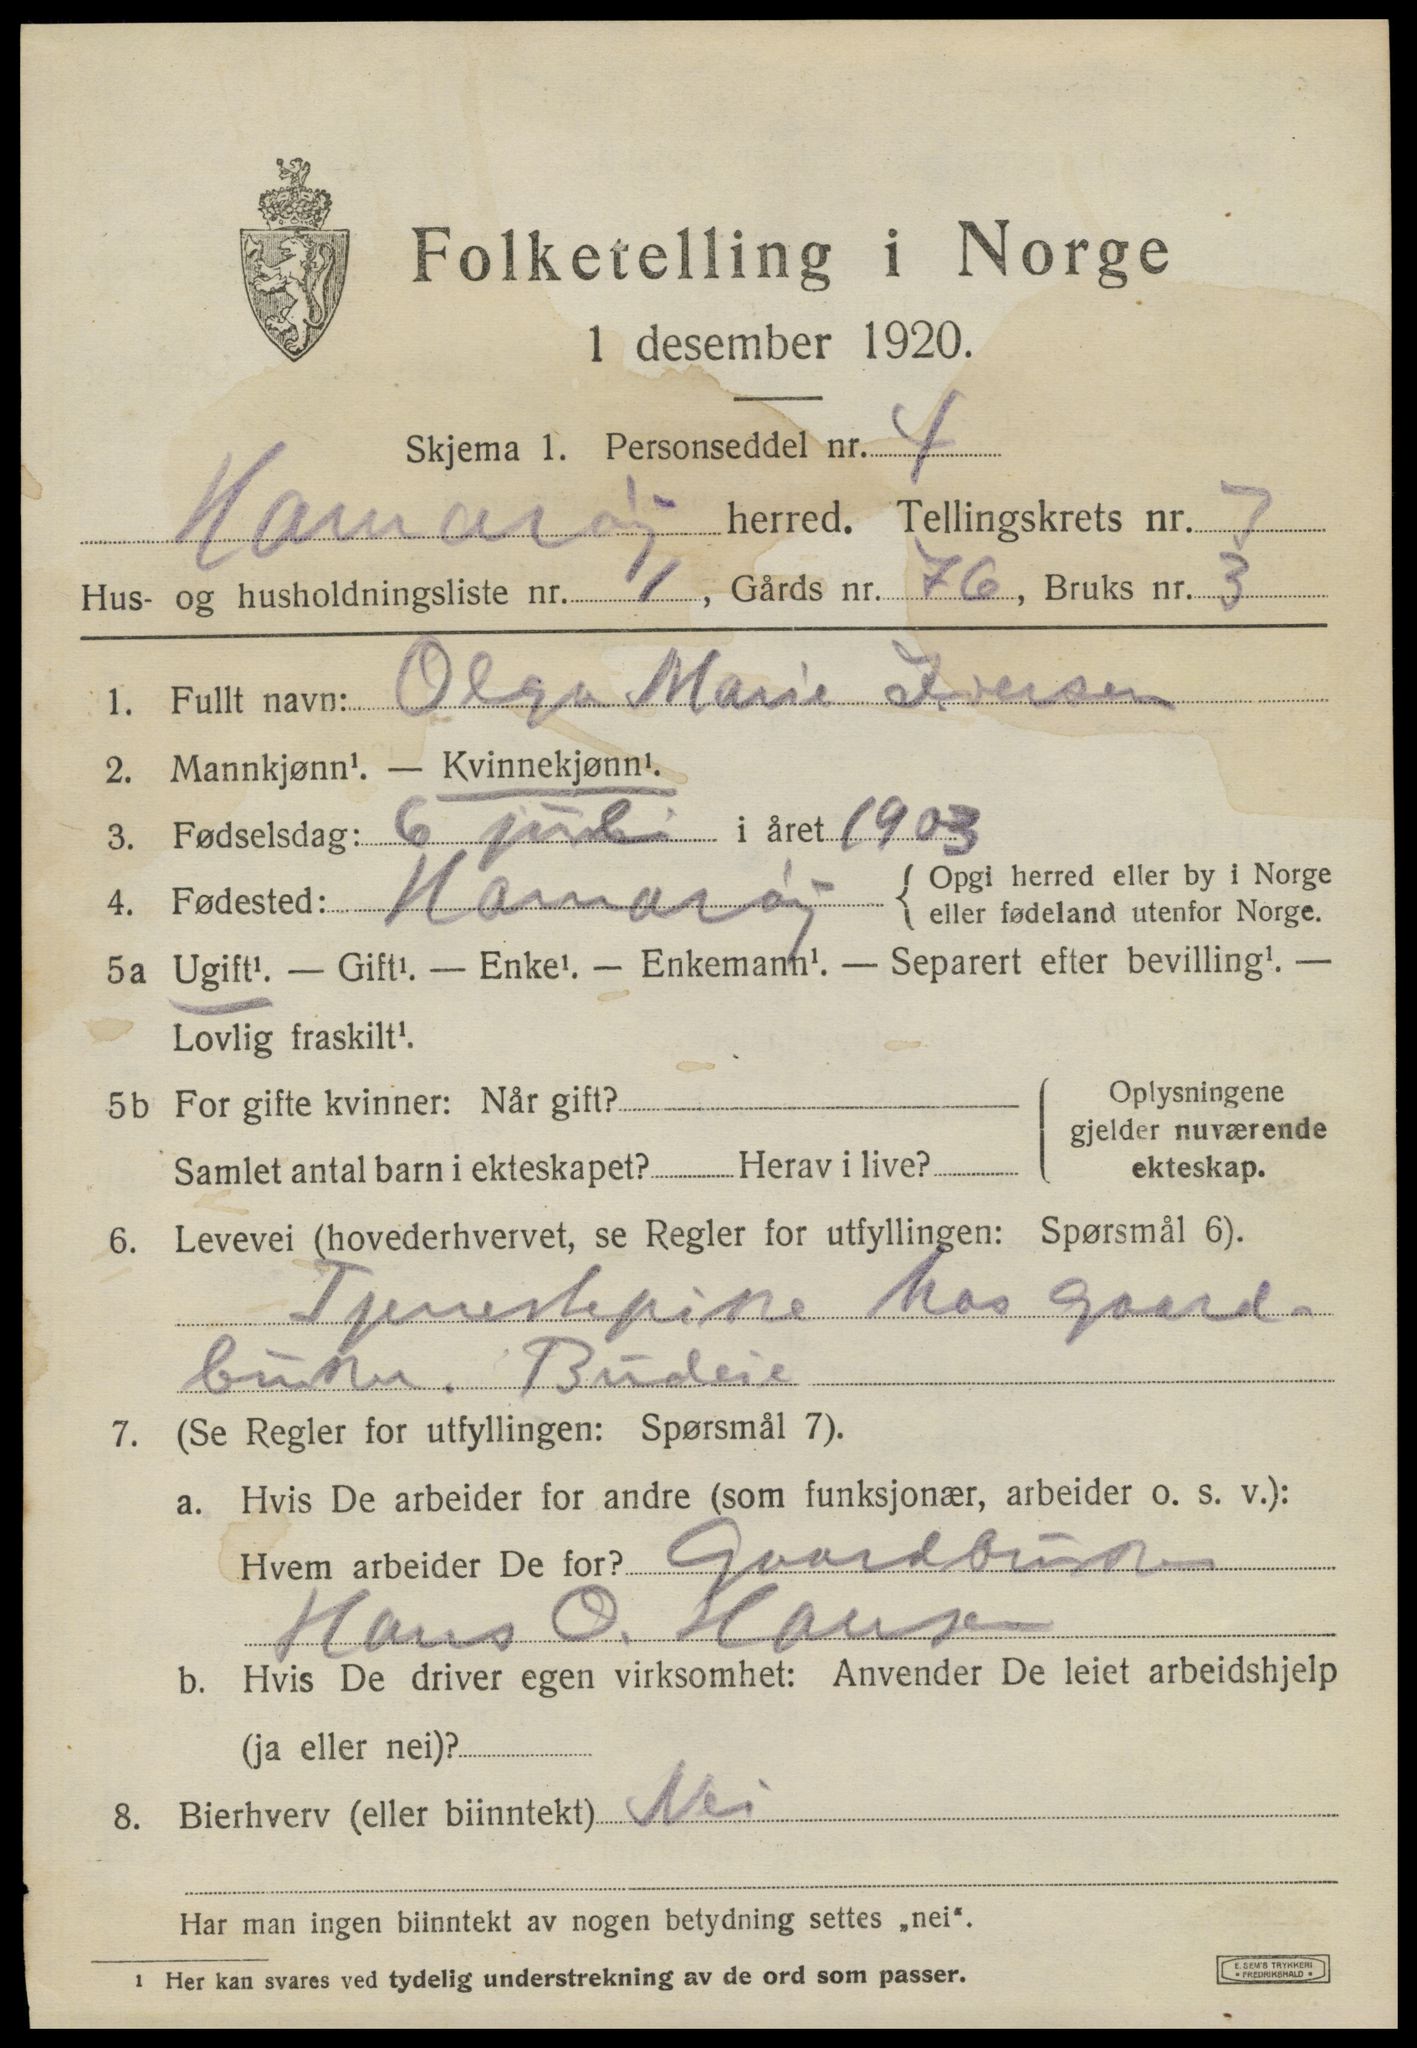 Folketelling i Norge
1 desember 1920.
Skjema 1. Personseddel nr. 4
Hamarøy herred. Tellingskrets nr. 7
Hus- og husholdningsliste nr. 1, Gårds nr. 76, Bruks nr. 3
1. Fullt navn: Olga Marie Iversen
2. Mannkjønn¹. — Kvinnekjønn¹.
3. Fødselsdag: 6 juli i året 1903
4. Fødested: Hamarøy { Opgi herred eller by i Norge
eller fødeland utenfor Norge.
5a Ugift¹. — Gift¹. — Enke¹. — Enkemann¹. — Separert efter bevilling¹. —
Lovlig fraskilt¹.
5b For gifte kvinner: Når gift?
Samlet antal barn i ekteskapet? Herav i live?
Oplysningene
gjelder nuværende
ekteskap.
6. Levevei (hovederhvervet, se Regler for utfyllingen: Spørsmål 6).
Tjenestepike hos Gaard-
bruker. Budeie
7. (Se Regler for utfyllingen: Spørsmål 7).
a. Hvis De arbeider for andre (som funksjonær, arbeider o. s. v.):
Hvem arbeider De for? Gaardbruker
Hans O. Hansen
b. Hvis De driver egen virksomhet: Anvender De leiet arbeidshjelp
(ja eller nei)?
8. Bierhverv (eller biinntekt) Nei
Har man ingen biinntekt av nogen betydning settes „nei“.
¹ Her kan svares ved tydelig understrekning av de ord som passer.
E. SEM'S TRYKKERI
• FREDRIKSHALD •